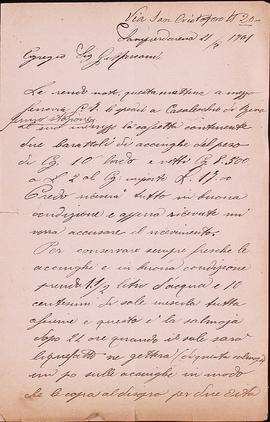 Via San Cristoforo N 20
Sampierdarena 21/8 1901
Egregio Sig
Le rendo noto, questa mattina a mezzo
ferrovia le spedii a Casalecchio di Reno
fermo stazione
al suo indirizzo la cassetta contenente
due barattoli di acciughe del peso
di Cg 10 lordo e netto Cg 8.500
a L 2 al Cg importo L. 17.00
Credo riceverà tutto in buona
condizione e appena ricevute mi
vorrà accusare il ricevimento.
Per conservare sempre fresche le
acciughe ed in buona condizione
prenda 1 1/2 litro d'acqua e 10
centesimi di sale mescola tutto
assieme e questo è la salmoja
dopo 24 ore quando il sale sarà
liquefatto ne getterà (di questa salmoja)
un po sulle acciughe in modo
che le copra al disopra per due dita